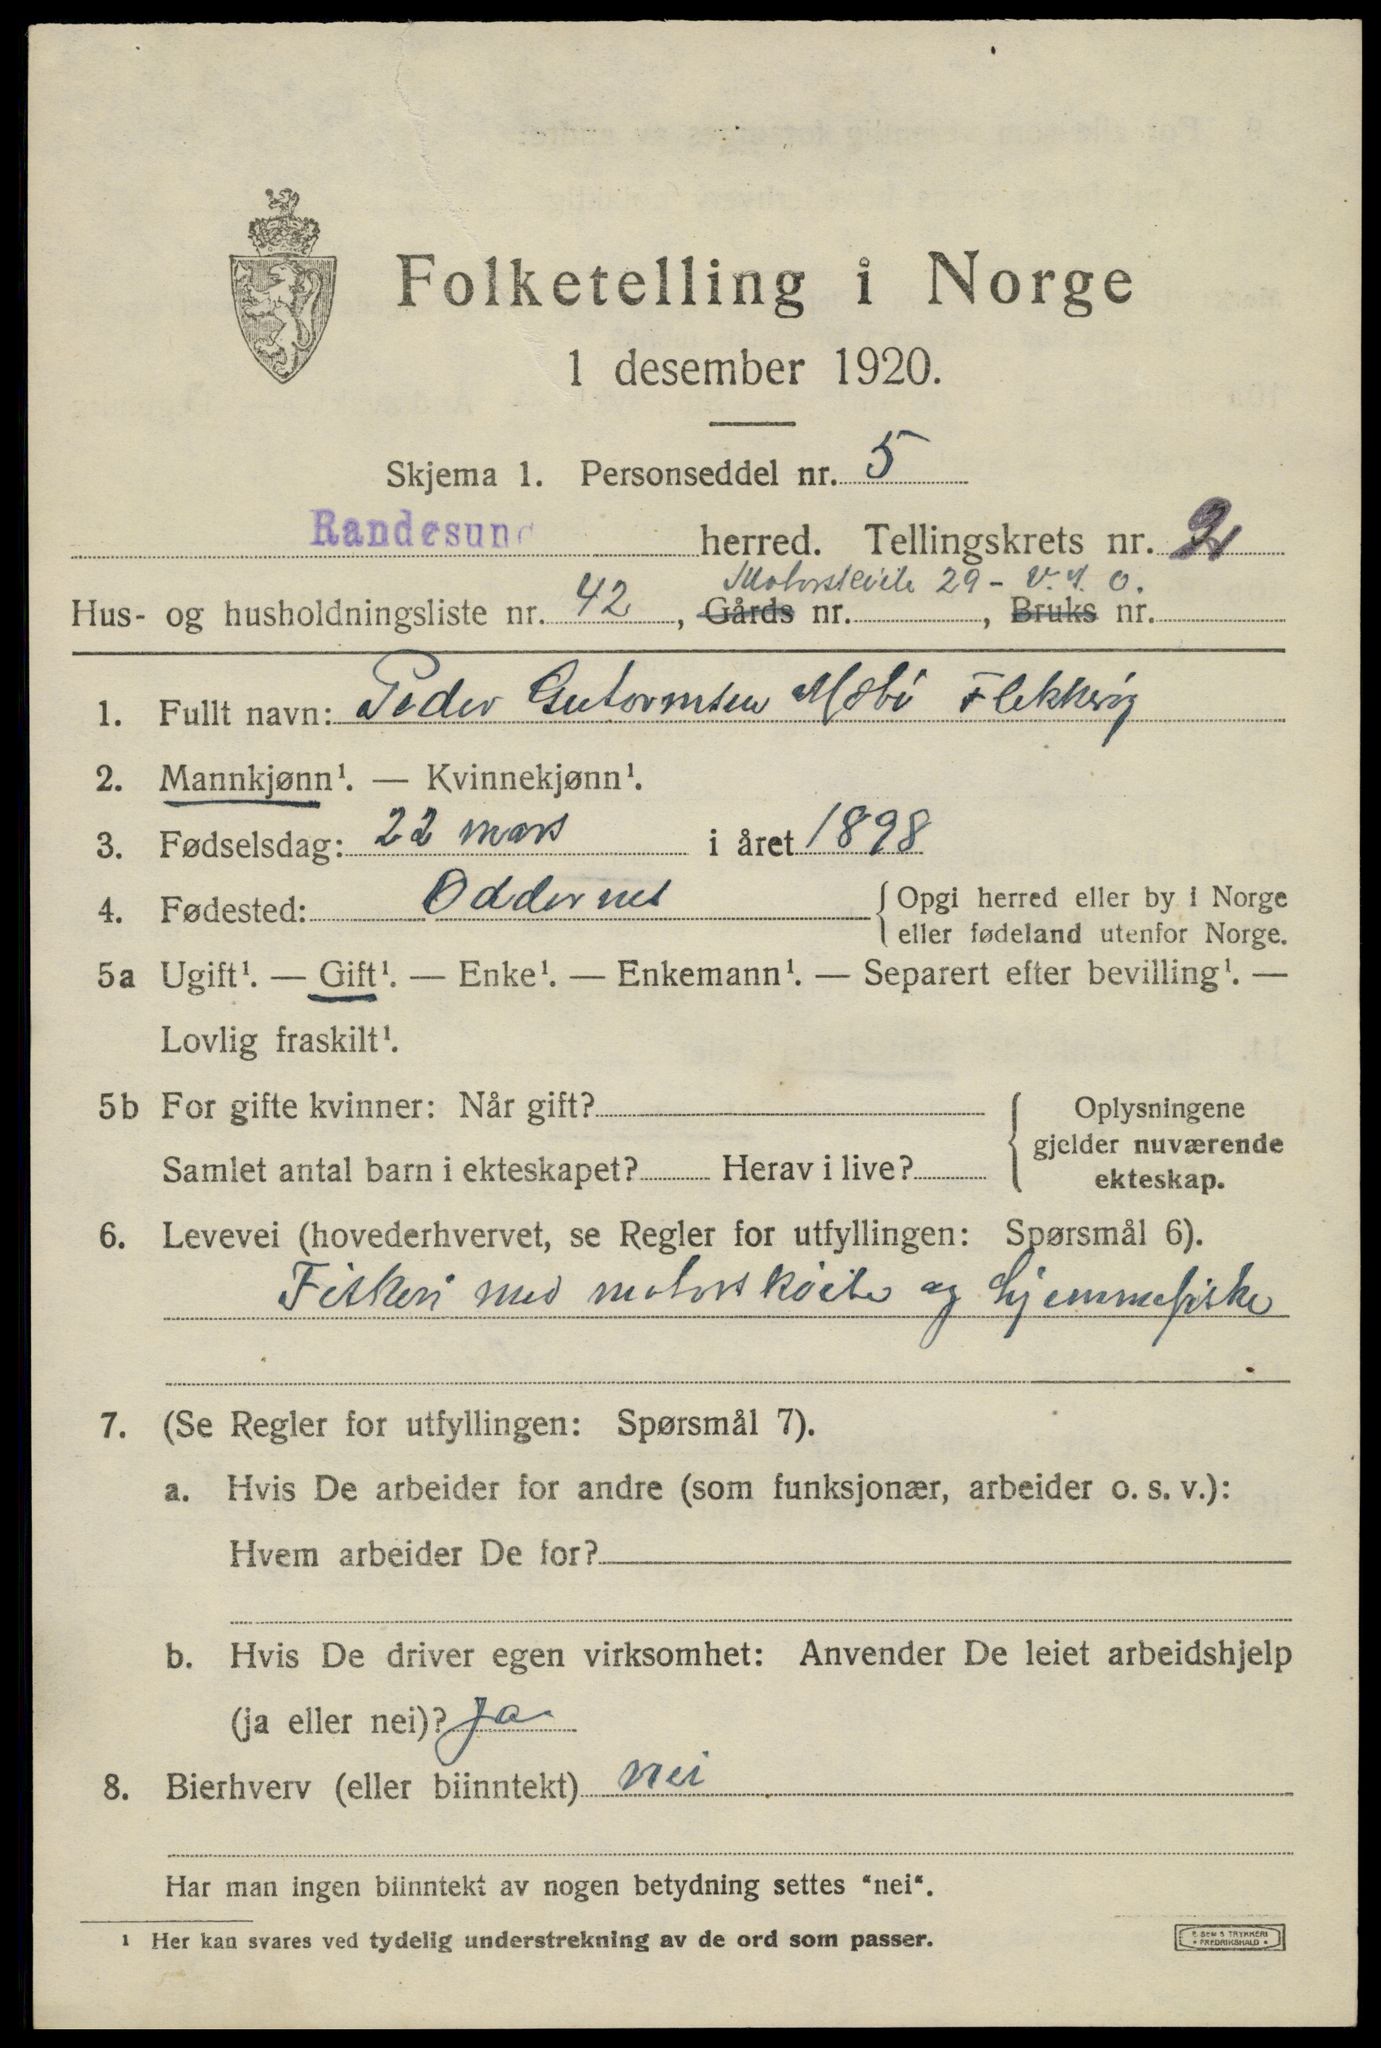 Folketelling i Norge
1 desember 1920.
Skjema 1. Personseddel nr. 5
Randesund herred. Tellingskrets nr. 2
Motorskøite 29 - V. A. O.
Hus- og husholdningsliste nr. 42, Gårds nr. , Bruks nr.
1. Fullt navn: Peder Gutormsen Mæbø Flekkerøy
2. Mannkjønn¹. — Kvinnekjønn¹.
3. Fødselsdag: 22 mars i året 1898
4. Fødested: Oddernes { Opgi herred eller by i Norge
eller fødeland utenfor Norge.
5a Ugift¹. — Gift¹. — Enke¹. — Enkemann¹. — Separert efter bevilling¹. —
Lovlig fraskilt¹.
5b For gifte kvinner: Når gift? { Oplysningene
gjelder nuværende
Samlet antal barn i ekteskapet? Herav i live? ekteskap.
6. Levevei (hovederhvervet, se Regler for utfyllingen: Spørsmål 6).
Fiskeri med motorskøite og hjemmefiske
7. (Se Regler for utfyllingen: Spørsmål 7).
a. Hvis De arbeider for andre (som funksjonær, arbeider o. s. v.):
Hvem arbeider De for?
b. Hvis De driver egen virksomhet: Anvender De leiet arbeidshjelp
(ja eller nei)? Ja
8. Bierhverv (eller biinntekt) nei
Har man ingen biinntekt av nogen betydning settes "nei".
¹ Her kan svares ved tydelig understrekning av de ord som passer.
E. SEM'S TRYKKERI
FREDRIKSHALD